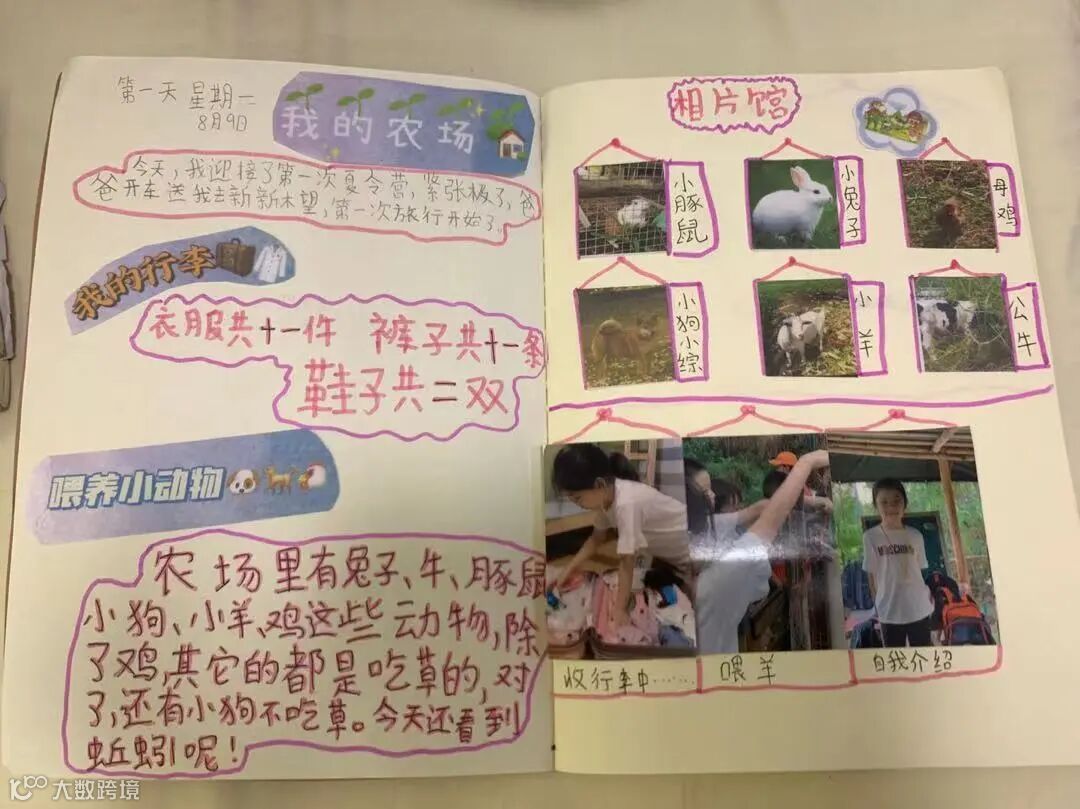 第一天 星期一
8月9日
我的农场
今天,我迎接了第一次夏令营,紧张极了,爸
爸开车送我去新新木望,第一次旅行开始了。
我的行李
衣服共十一件 裤子共十一条
鞋子共二双
喂养小动物
农场里有兔子、牛、豚鼠
小狗、小羊、鸡这些动物,除
了鸡,其它的都是吃草的,对
了,还有小狗不吃草。今天还看到
蚯蚓呢!
相片馆
小豚鼠
小兔子
母鸡
小狗小综
小羊
公牛
MOSCHINO
收行李中……
喂羊
自我介绍
大数跨境